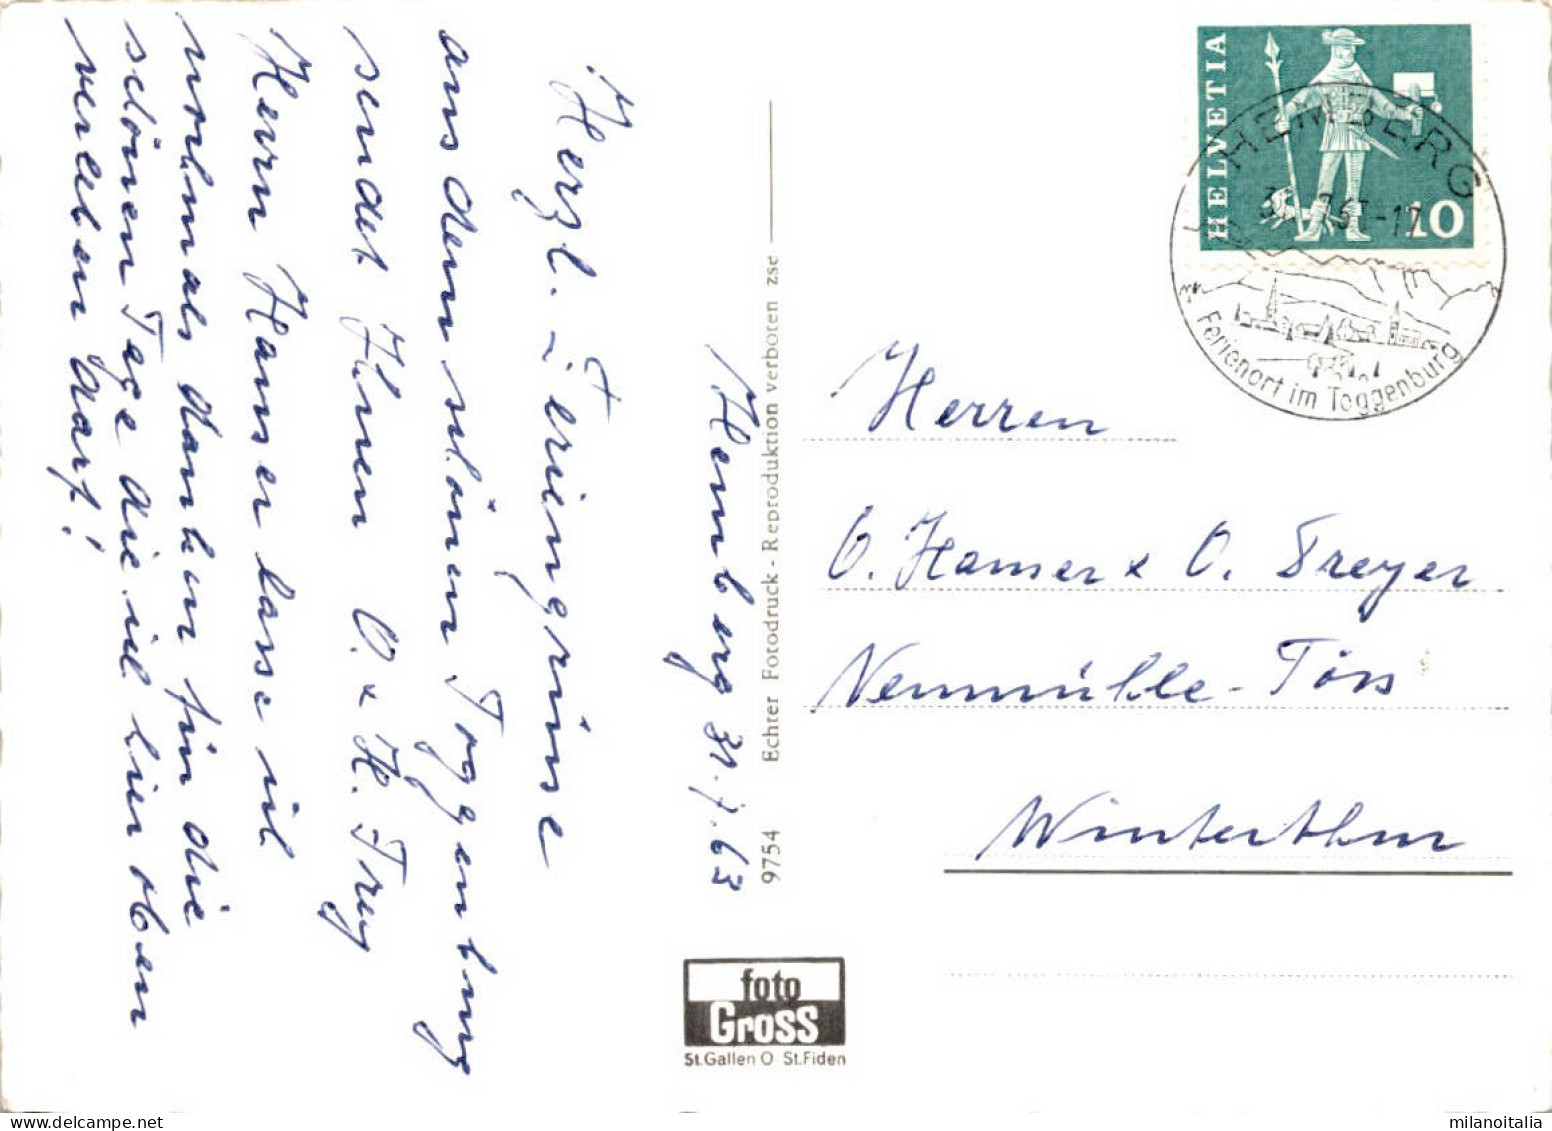 Hemberg 31.7.63
Herzl. Feriengrüsse
aus dem schönen Toggenburg
sendet Ihnen O. & H. Frey
Herrn Hamser lasse ich
nochmals danken für die
schönen Tage die ich hier oben
verleben darf!
HELVETIA
10
HEMBERG
-17
Ferienort im Toggenburg
Herren
O. Hamser & O. Freyer
Neumühle-Töss
Winterthur
9754 Echter Fotodruck - Reproduktion verboten zse
foto
Gross
St.Gallen O St.Fiden
milanoitalia